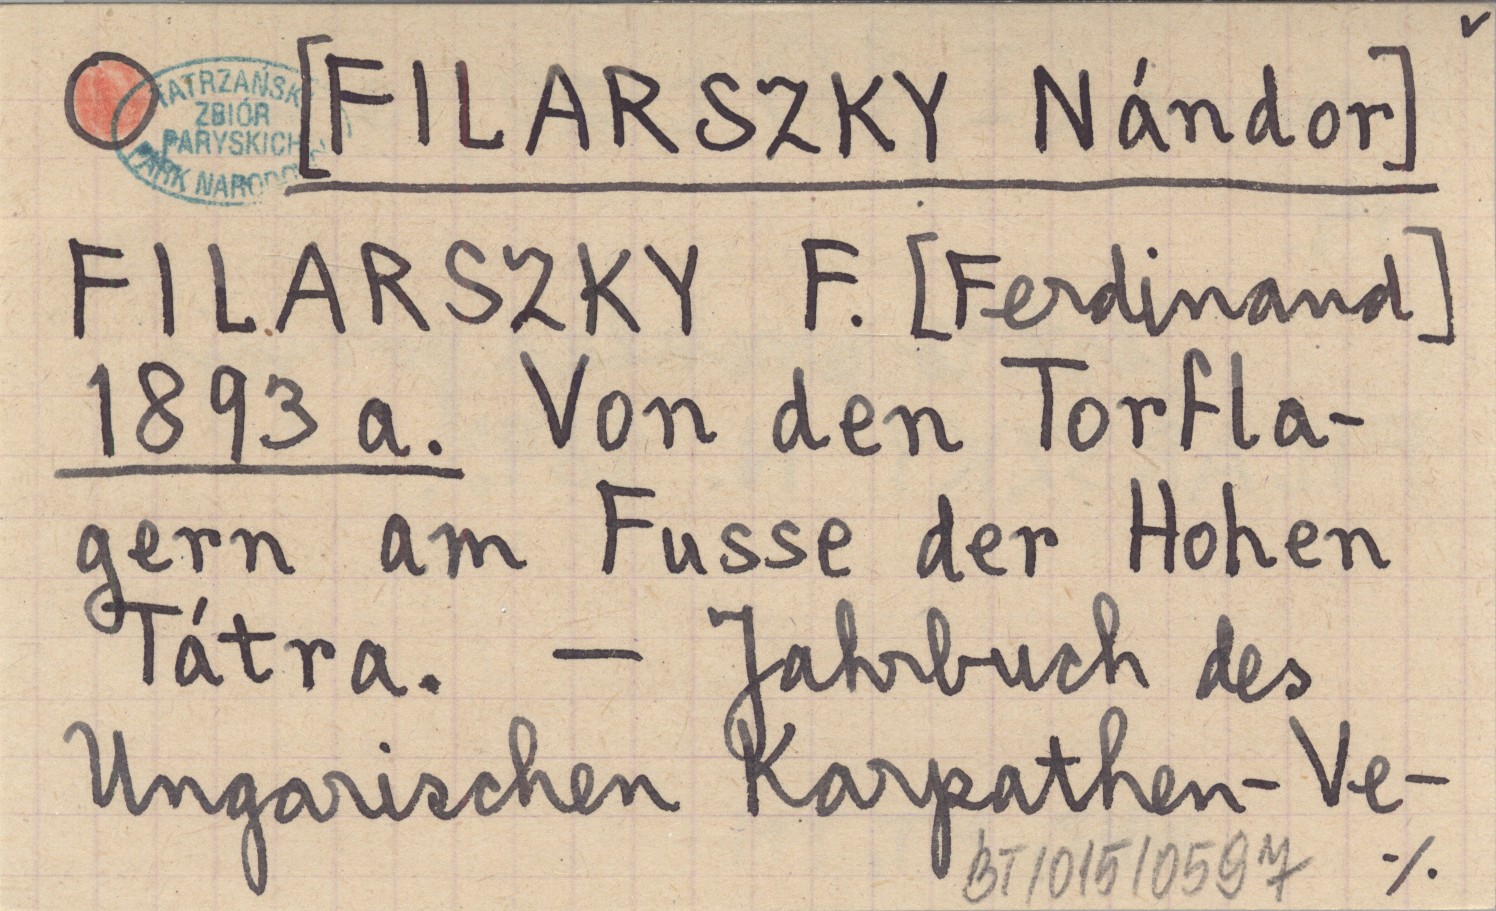 [FILARSZKY Nándor]
TATRZAŃSKI
ZBIÓR
PARYSKICH
PARK NARODOWY
FILARSZKY F. [Ferdinand]
1893 a. Von den Torfla-
gern am Fusse der Hohen
Tátra. — Jahrbuch des
Ungarischen Karpathen-Ve-
BT/015/0597 ·/.